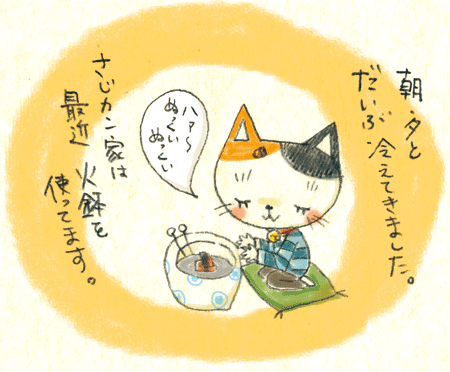 朝・夕と
だいぶ
冷えてきました。
ハァ〜
ぬっくい
ぬっくい
さじカン家は
最近
火鉢を
使ってます。